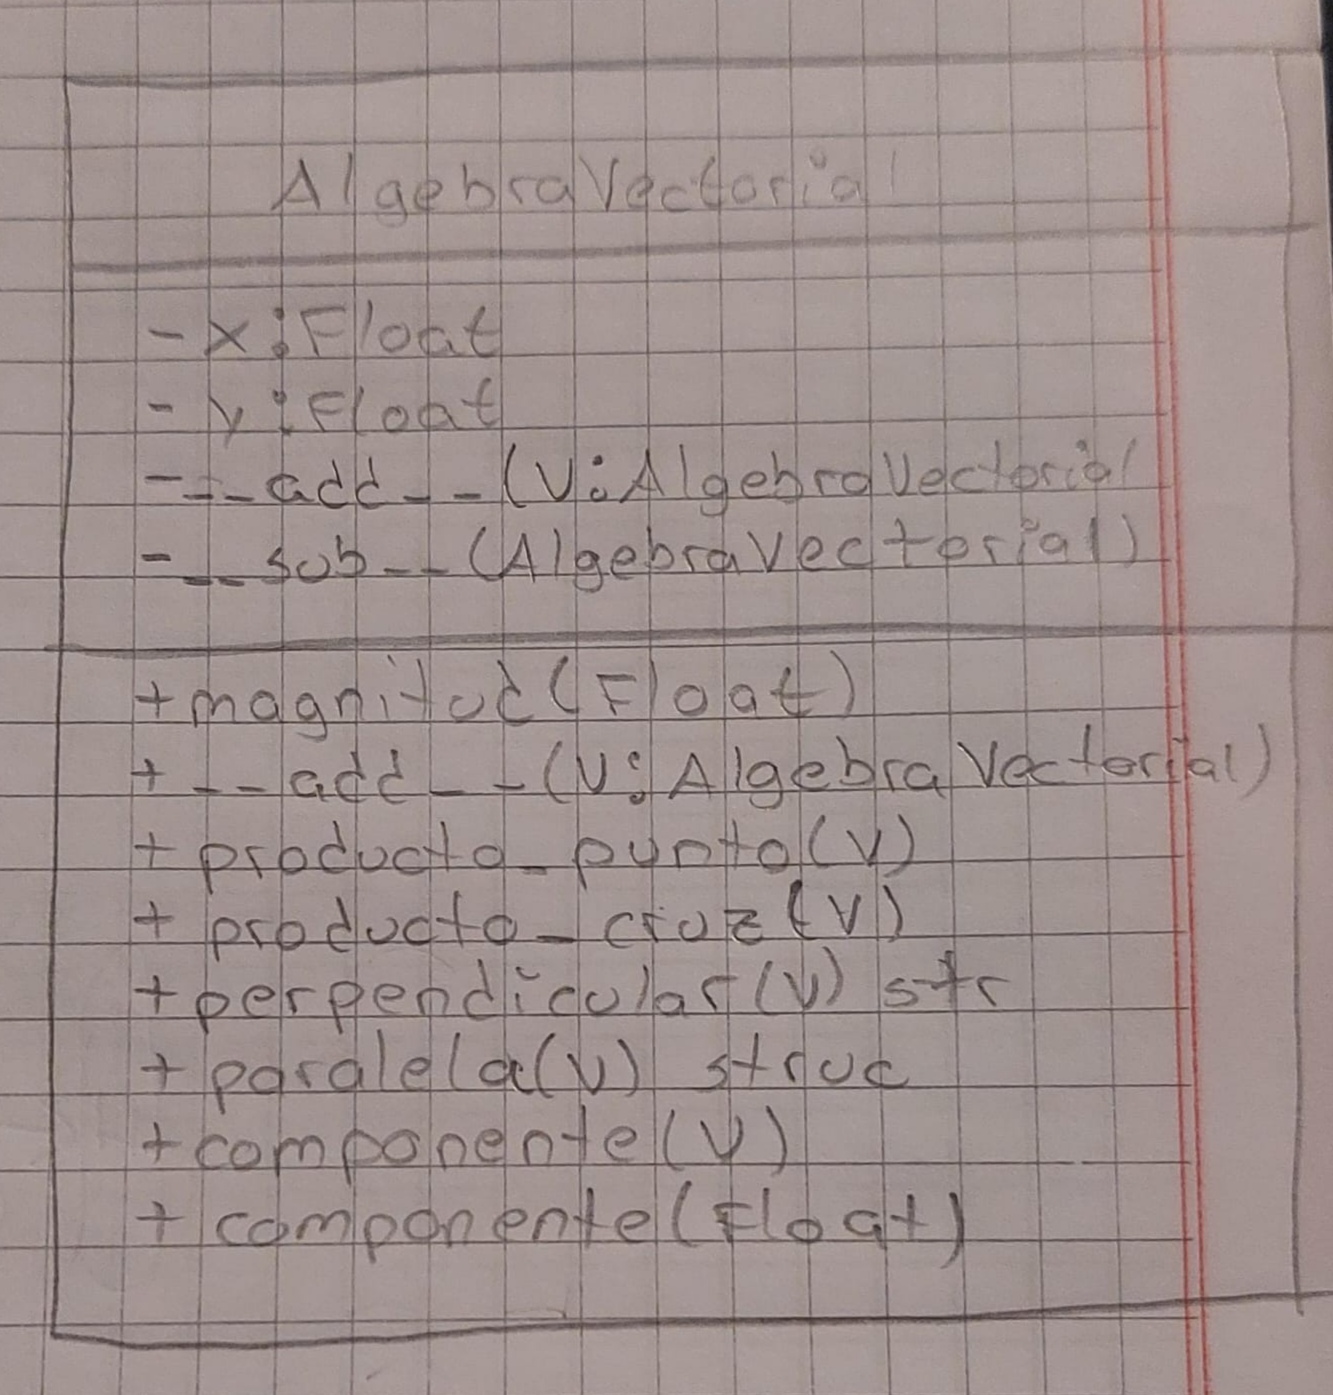 AlgebraVectorial
- x: Float
- y: Float
- __add__ (V: AlgebraVectorial
- __sub__ (AlgebraVectorial)
+ magnitud (Float)
+ __add__ (V: AlgebraVectorial)
+ producto_punto(V)
+ producto_cruz (V)
+ perpendicular(V) str
+ paralela(V) struc
+ componente(V)
+ componente(Float)